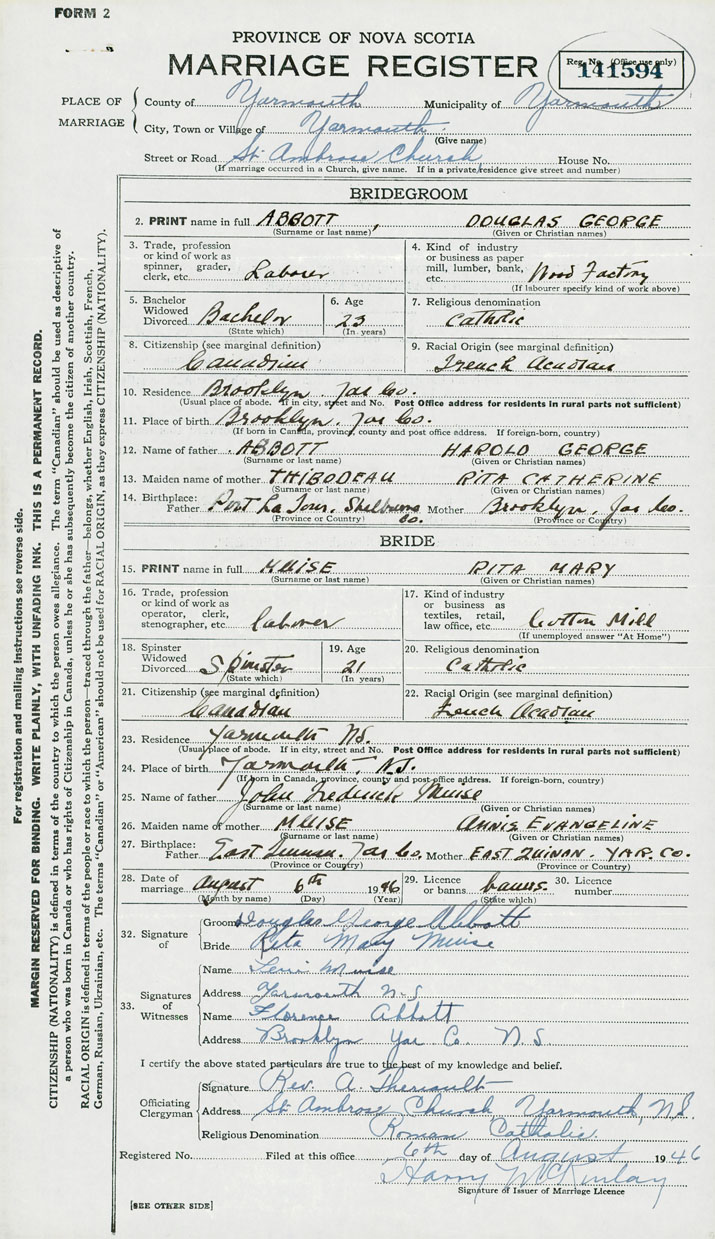 FORM 2
PROVINCE OF NOVA SCOTIA
MARRIAGE REGISTER
Reg. No. (Office use only)
141594
PLACE OF MARRIAGE
County of Yarmouth Municipality of Yarmouth
City, Town or Village of Yarmouth
(Give name)
Street or Road St. Ambrose Church House No.
(If marriage occurred in a Church, give name. If in a private residence give street and number)
BRIDEGROOM
2. PRINT name in full ABBOTT, DOUGLAS GEORGE
(Surname or last name) (Given or Christian names)
3. Trade, profession or kind of work as spinner, grader, clerk, etc. Laborer
4. Kind of industry or business as paper mill, lumber, bank, etc. Wood Factory
(If labourer specify kind of work above)
5. Bachelor Widowed Divorced Bachelor
(State which)
6. Age 23
(In years)
7. Religious denomination Catholic
8. Citizenship (see marginal definition) Canadian
9. Racial Origin (see marginal definition) French Acadian
10. Residence Brooklyn. Yar Co.
(Usual place of abode. If in city, street and No. Post Office address for residents in rural parts not sufficient)
11. Place of birth Brooklyn. Yar Co.
(If born in Canada, province, county and post office address. If foreign-born, country)
12. Name of father ABBOTT HAROLD GEORGE
(Surname or last name) (Given or Christian names)
13. Maiden name of mother THIBODEAU RITA CATHERINE
(Surname or last name) (Given or Christian names)
14. Birthplace: Father Port La Tour. Shelburne Co. Mother Brooklyn. Yar Co.
(Province or Country) (Province or Country)
BRIDE
15. PRINT name in full MUISE RITA MARY
(Surname or last name) (Given or Christian names)
16. Trade, profession or kind of work as operator, clerk, stenographer, etc. Laborer
17. Kind of industry or business as textiles, retail, law office, etc. Cotton Mill
(If unemployed answer "At Home")
18. Spinster Widowed Divorced Spinster
(State which)
19. Age 21
(In years)
20. Religious denomination Catholic
21. Citizenship (see marginal definition) Canadian
22. Racial Origin (see marginal definition) French Acadian
23. Residence Yarmouth N.S.
(Usual place of abode. If in city, street and No. Post Office address for residents in rural parts not sufficient)
24. Place of birth Yarmouth, N.S.
(If born in Canada, province, county and post office address. If foreign-born, country)
25. Name of father John Frederick Muise
(Surname or last name) (Given or Christian names)
26. Maiden name of mother MUISE ANNIE EVANGELINE
(Surname or last name) (Given or Christian names)
27. Birthplace: Father East Quinan. Yar Co. Mother EAST QUINAN - YAR. CO.
(Province or Country) (Province or Country)
28. Date of marriage August 6th 1946
(Month by name) (Day) (Year)
29. Licence or banns banns
(State which)
30. Licence number
32. Signature of
Groom Douglas George Abbott
Bride Rita Mary Muise
33. Signatures of Witnesses
Name Muise
Address Yarmouth N-S
Name Florence Abbott
Address Brooklyn Yar Co. N.S.
I certify the above stated particulars are true to the best of my knowledge and belief.
Officiating Clergyman
Signature Rev. A. Theriault
Address St. Ambrose Church Yarmouth, N.S.
Religious Denomination Roman Catholic
Registered No. Filed at this office 6th day of August 1946
Harry McKinlay
Signature of Issuer of Marriage Licence
[SEE OTHER SIDE]
For registration and mailing instructions see reverse side.
MARGIN RESERVED FOR BINDING. WRITE PLAINLY, WITH UNFADING INK. THIS IS A PERMANENT RECORD.
CITIZENSHIP (NATIONALITY) is defined in terms of the country to which the person owes allegiance. The term "Canadian" should be used as descriptive of
a person who was born in Canada or who has rights of Citizenship in Canada, unless he or she has subsequently become the citizen of another country.
RACIAL ORIGIN is defined in terms of the people or race to which the person—traced through the father—belongs, whether English, Irish, Scottish, French,
German, Russian, Ukrainian, etc. The terms "Canadian" or "American" should not be used for RACIAL ORIGIN, as they express CITIZENSHIP (NATIONALITY).